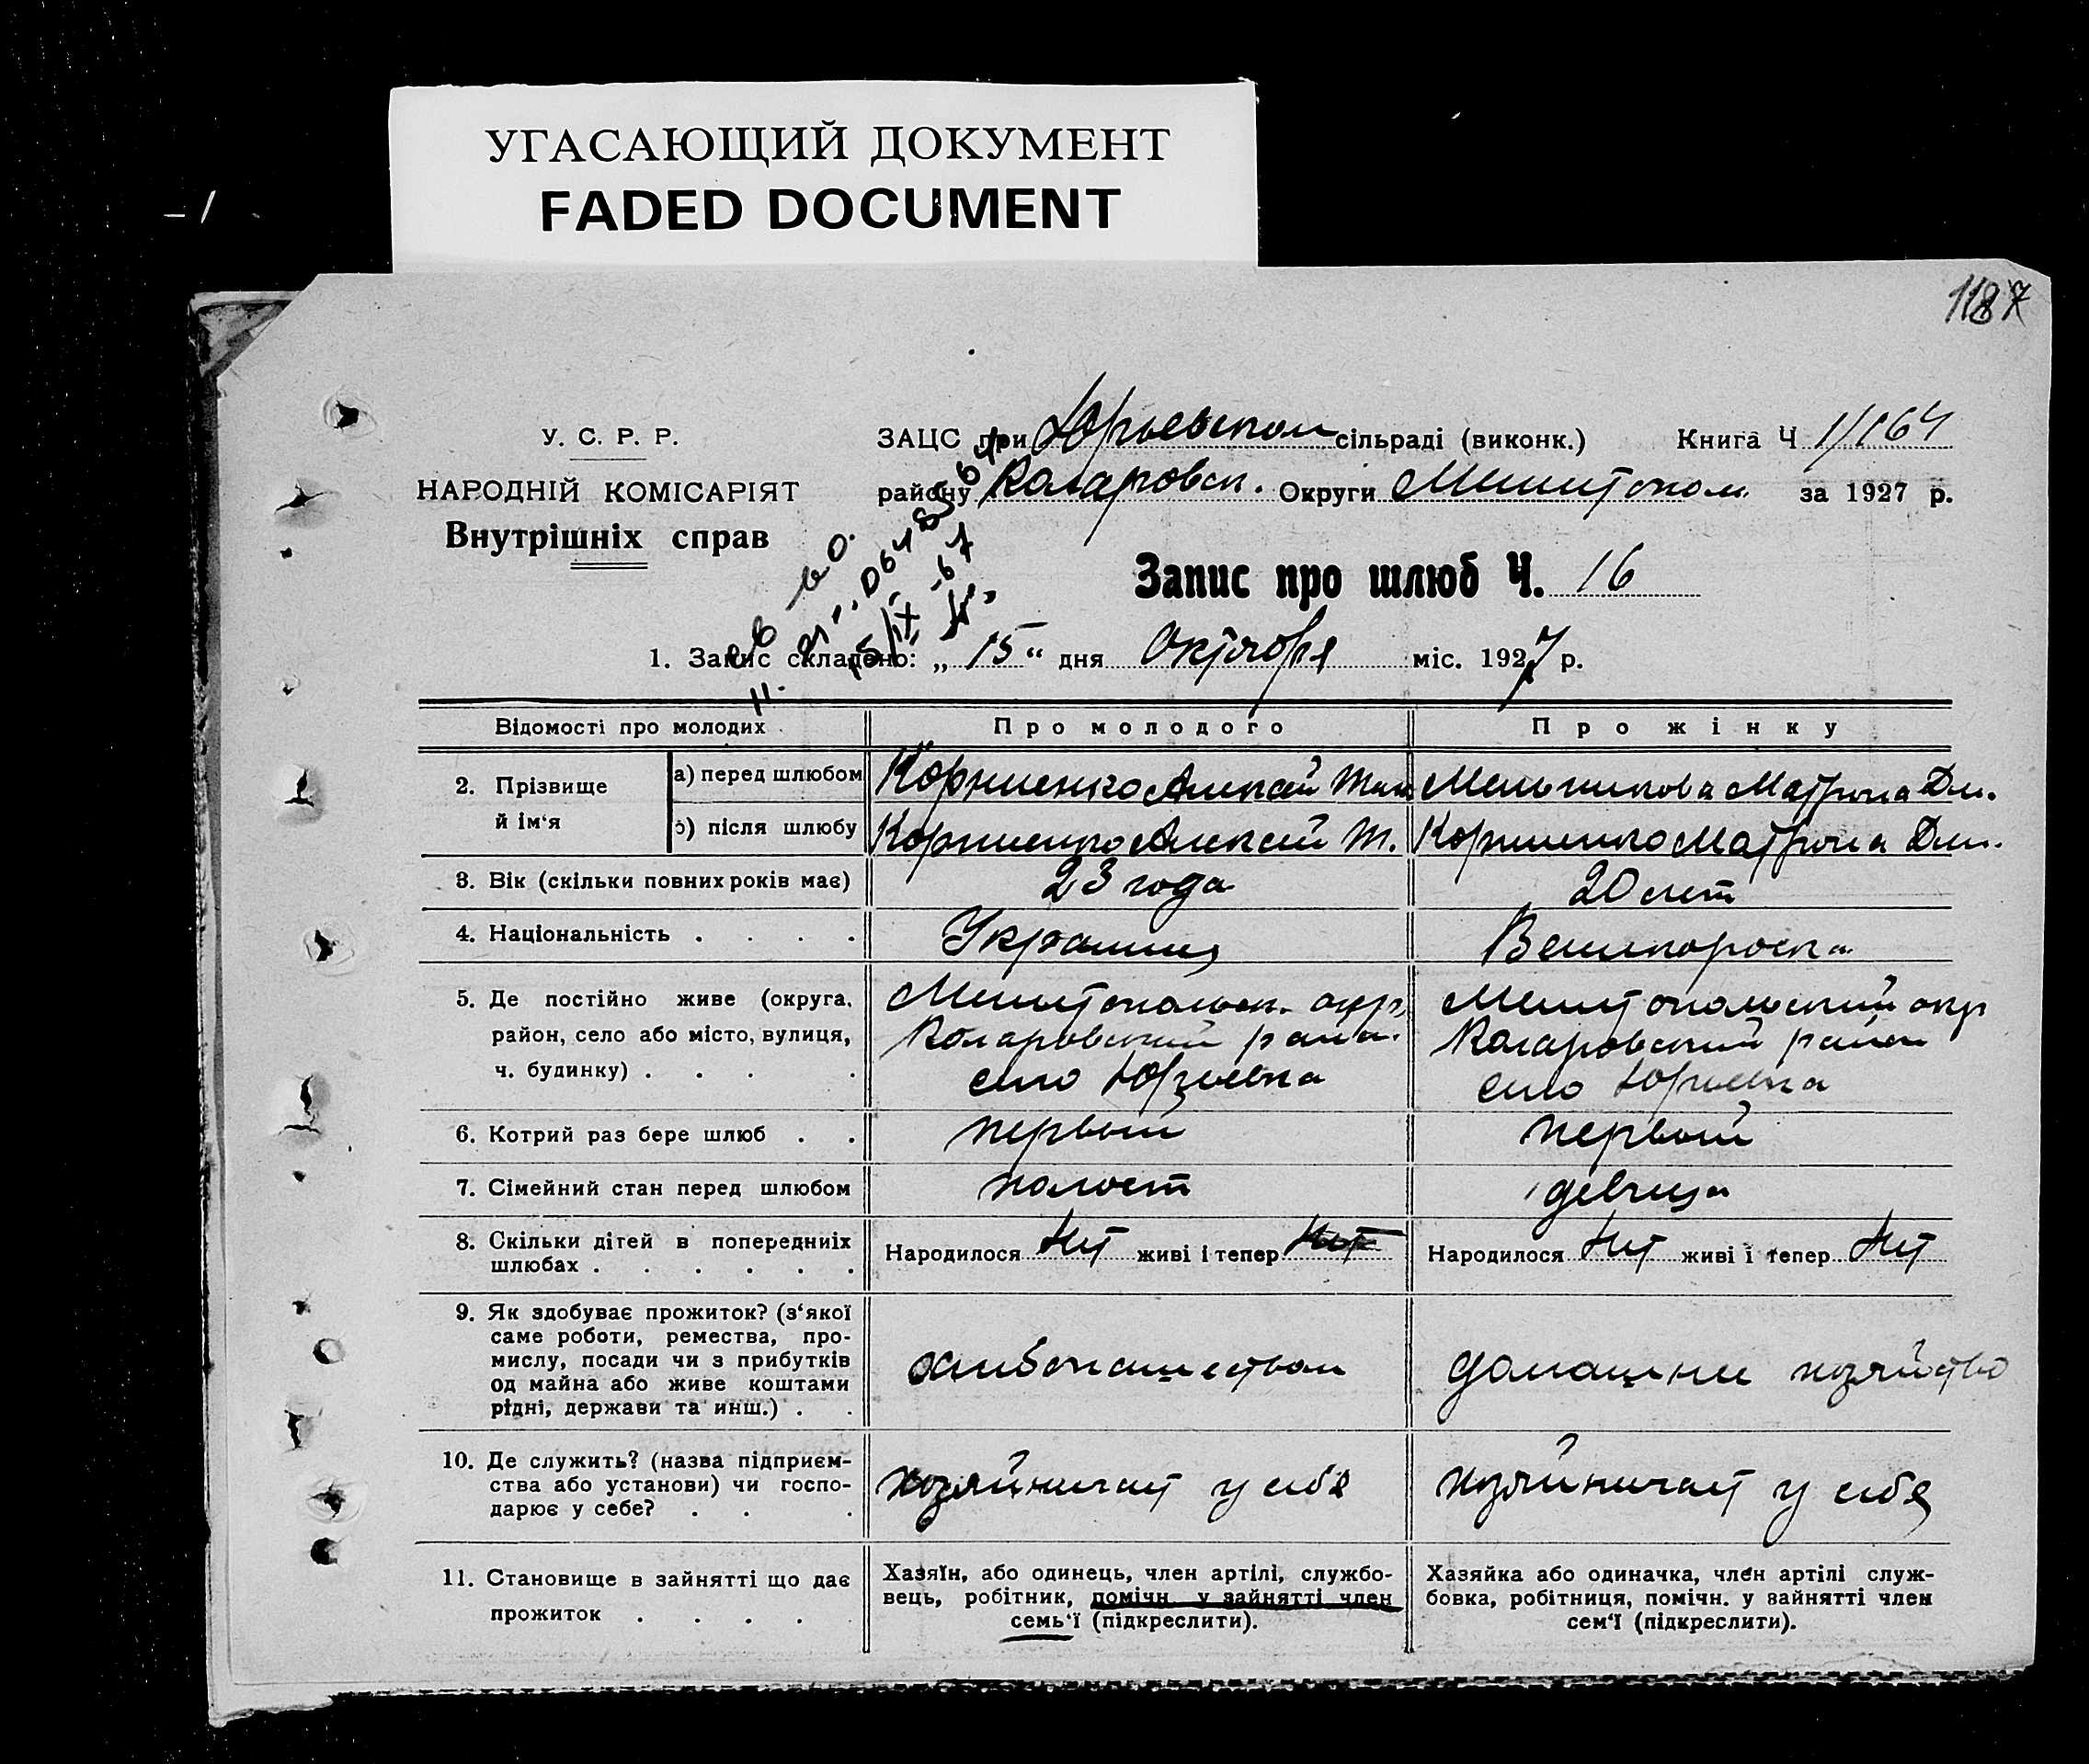 УГАСАЮЩИЙ ДОКУМЕНТ
FADED DOCUMENT
1187
У. С. Р. Р.
НАРОДНІЙ КОМІСАРІЯТ
Внутрішніх справ
ЗАЦС при Юрьевском сільраді (виконк.) Книга Ч 1/164
району Коларовск. Округи Мелитопол. за 1927 р.
Запис про шлюб Ч. 16
1. Запис складено: „ 15 “ дня Октября міс. 1927 р.
Відомості про молодих
Про молодого
Про жінку
2. Прізвище й ім‘я
а) перед шлюбом
Корниенко Алексей Тим
Мельникова Матрона Дм.
б) після шлюбу
Корниенко Алексей Т.
Корниенко Матрона Дм.
3. Вік (скільки повних років має)
23 года
20 лет
4. Національність . . . .
Украинец
Великороска
5. Де постійно живе (округа,
район, село або місто, вулиця,
ч. будинку) . . . .
Мелитопольск. окр,
Коларовский район.
село Юрьевка
Мелитопольский окр
Коларовский район
село Юрьевка
6. Котрий раз бере шлюб . .
первый
первый
7. Сімейний стан перед шлюбом
холост
девица
8. Скільки дітей в попередниіх
шлюбах . . . . . .
Народилося Нет живі і тепер Нет
Народилося Нет живі і тепер Нет
9. Як здобуває прожиток? (з‘якої
саме роботи, ремества, про-
мислу, посади чи з прибутків
од майна або живе коштами
рідні, держави та инш.) . .
хлебопашеством
домашнее хозяйство
10. Де служить? (назва підприєм-
ства або установи) чи госпо-
дарює у себе? . . .
хозяйничает у себя
хозяйничает у себя
11. Становище в зайнятті що дає
прожиток . . . .
Хазяїн, або одинець, член артілі, службо-
вець, робітник, помічн. у зайнятті член
семь‘ї (підкреслити).
Хазяйка або одиначка, член артілі служ-
бовка, робітниця, помічн. у зайнятті член
сем‘ї (підкреслити).